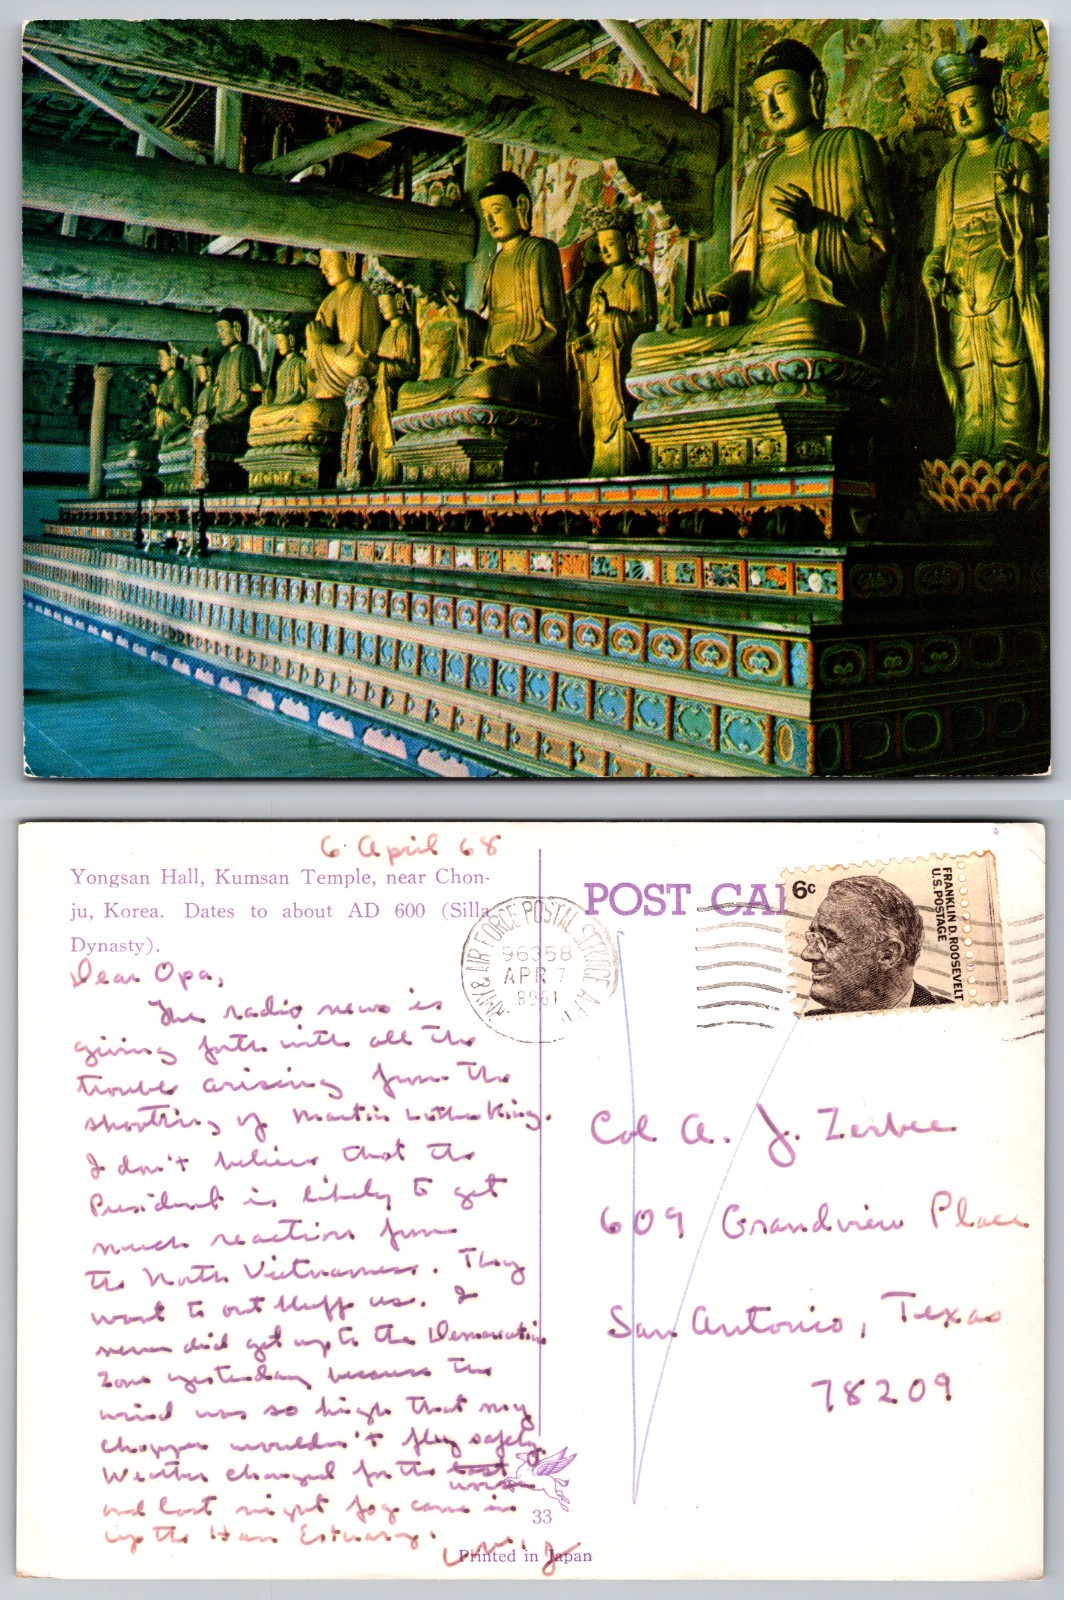 6 April 68
Yongsan Hall, Kumsan Temple, near Chon-
ju, Korea. Dates to about AD 600 (Silla
Dynasty).
Dear Opa,
The radio news is
giving forth with all the
trouble arising from the
shooting of Martin Luther King.
I don't believe that the
President is likely to get
much reaction from
the North Vietnamese. They
want to out bluff us. I
never did get up to the Demarcation
Zone yesterday because the
wind was so high that my
chopper wouldn't fly safely.
Weather changed for the
worse
and last night fog came in
up the Han Estuary.
POST CA
6c
FRANKLIN D. ROOSEVELT
U.S. POSTAGE
ARMY & AIR FORCE POSTAL SERVICE
96358
APR 7
Col A. J. Zerbee
609 Grandview Place
San Antonio, Texas
78209
33
Printed in Japan